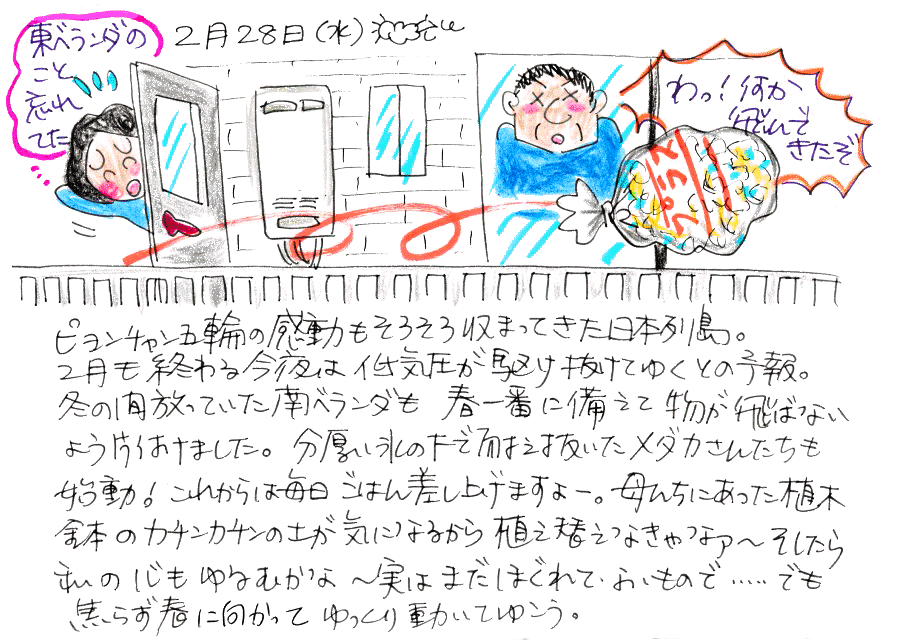 東ベランダの
こと
忘れ
てた
2月28日(水)
わっ!何か
飛んで
きたぞ
プラ
ピョンチャン五輪の感動もそろそろ収まってきた日本列島。
2月も終わる今夜は低気圧が駆け抜けてゆくとの予報。
冬の間放っていた南ベランダも 春一番に備えて物が飛ばない
よう片付けました。分厚い氷の下で耐え抜いたメダカさんたちも
始動!これからは毎日ごはん差し上げますよー。母んちにあった植木
鉢のカチンカチンの土が気になるから植え替えなきゃなァ〜そしたら
私の心もゆるむかな〜実はまだほぐれてないもので……でも
焦らず春に向かってゆっくり動いてゆこう。